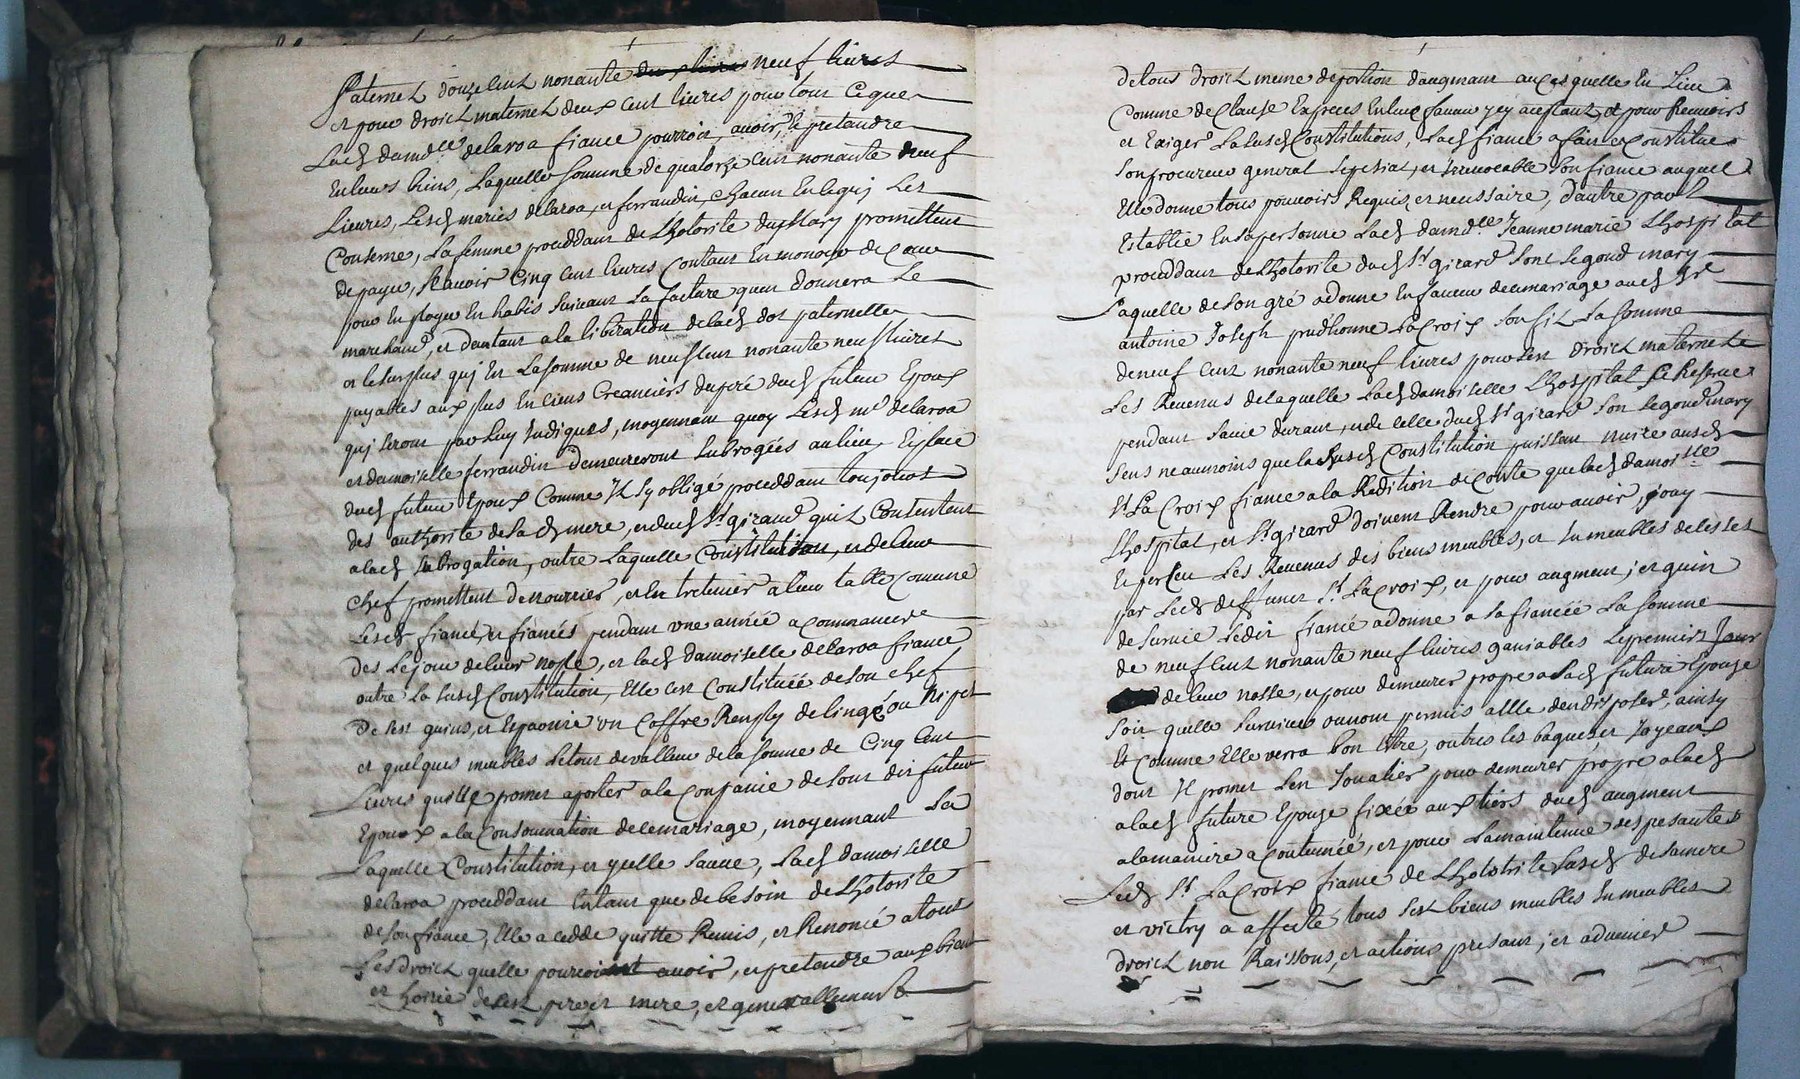 paternel douze cent nonante neuf livres
et pour droict maternel deux cent livres pour tout ce que
lad damdlle delaroa fiance pourroit avoir, et pretandre
en leurs biens, laquelle somme de quatorze cent nonante neuf
livres, lesd mariés delaroa, et ferraudin, chacun en ce qui les
conserne, la femme proceddant de lhotorite dud mary promettent
de payer, scavoir cinq cent livres contant en monoye de cour
pour employer en habis suivant la facture quen donnera le
marchand, et dautant a la liberation de lad dot paternelle
et le surplus qui est la somme de neuf cent nonante neuf livres
payables aux plus enciens creanciers du pere dud futeur epoux
qui seront par luy indiqués, moyennant quoy lesd mr delaroa
et demoiselle ferraudin demeureront subrogées au lieu, et place
dud futeur epoux comme il sy obligé proceddant toujours
des authorite de sad mere, et dud sr girard qui consentent
a lad subrogation, outre laquelle constitution, et de leur
chef promettent de nourrier, et entretenier a leur table comune
lesd fiance, et fiancés pendant une année a commancer
des le jour de leur nosse, et lad damoiselle delaroa fiance
outre la susd constitution, elle cest constituée de son chef
de ses gains, et espaonie un coffre remply de linge ou nipes
et quelques meubles le tout de valleur de la somme de cinq cent
livres quelle promet aporter a la compagnie de sont dit futeur
epoux a la consommation de ce mariage, moyennant la
laquelle constitution, et ycelle sauve, lad damoiselle
delaroa proceddant entant que de besoin de lhotorite
de son fiance, elle a cedde quitte remis, et renoncé a tous
les droicts quelle pourroit avoir, et pretendre aux biens
et hoirie de ses pere et mere, et generallement
de tous droict meme de portion daugmant auxquelle en lieu
comme de clause expresse en leur faveur yey aceptant, et pour recevoir
et exiger la susd constitutions, lad fiance a fait et constitue
son procureur general sepesial, et irrevocable son fiance auquel
elle donne tous pouvoirs requis et nessaire, dautre part
establie en sa personne lad damdlle Jeanne marie Lhospital
proceddant de lhotorite dud sr girard sont segond mary
laquelle de son gré a donne en faveur de ce mariage aud sre
antoine Joseph prudhomme Lacroix son fil la somme
de neuf cent nonante neuf livres pour ses droict maternele
les revenus de laquelle lad damoiselle Lhospital se reserve
pendant sa vie durant, et de celle dud sr girard son segond mary
sens neaumoins que la susd constitution puissent nuire aud
sr La Croix fiance a la redition de conte que lad damoislle
Lhospital, et sr girard doivent rendre pour avoir jouy
et perceu les revenus des biens meubles, et inmeubles delesses
par led deffunct sr Lacroix, et pour augment, et gain
de survie ledit fiance a donne a sa fiancée la somme
de neuf cent nonante neuf livres ganiables le premier jour
de leur nosse, et pour demeurer propre a lad future epouse
soit quelle survive ou non permis a elle den disposer, ainsy
et comme elle verra bon etre, outres les bagues, et joyeaux
dont il promet len jouallier pour demeurer propre a lad
a lad future epouse fixée aux tiers dud augment
a la maniere acoutumée, et pour la maintenue des presantes
led sr La croix fiance de lhotorite susd de sa mere
et victry a affecté tous ses biens meubles inmeubles
droict non raissons, et actions presant, et advenier